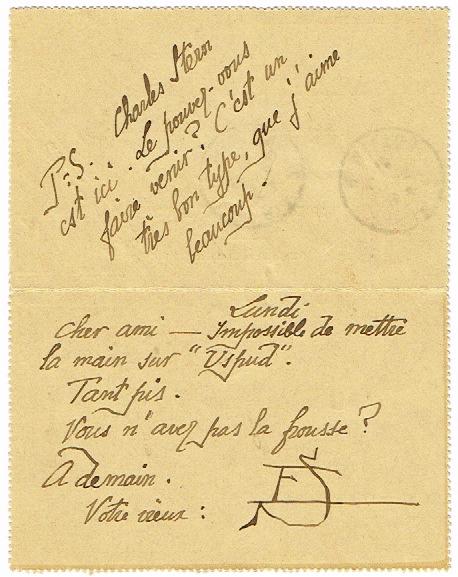 P.S. Charles Stern
est ici. Le pouvez-vous
faire venir? C'est un
très bon type, que j'aime
beaucoup.
Lundi
Cher ami — Impossible de mettre
la main sur "Uspud".
Tant pis.
Vous n'avez pas la frousse?
A demain.
Votre vieux : ES